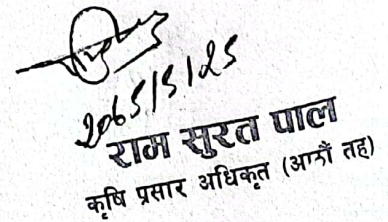 2065/5/25
राम सुरत पाल
कृषि प्रसार अधिकृत (आठौँ तह)